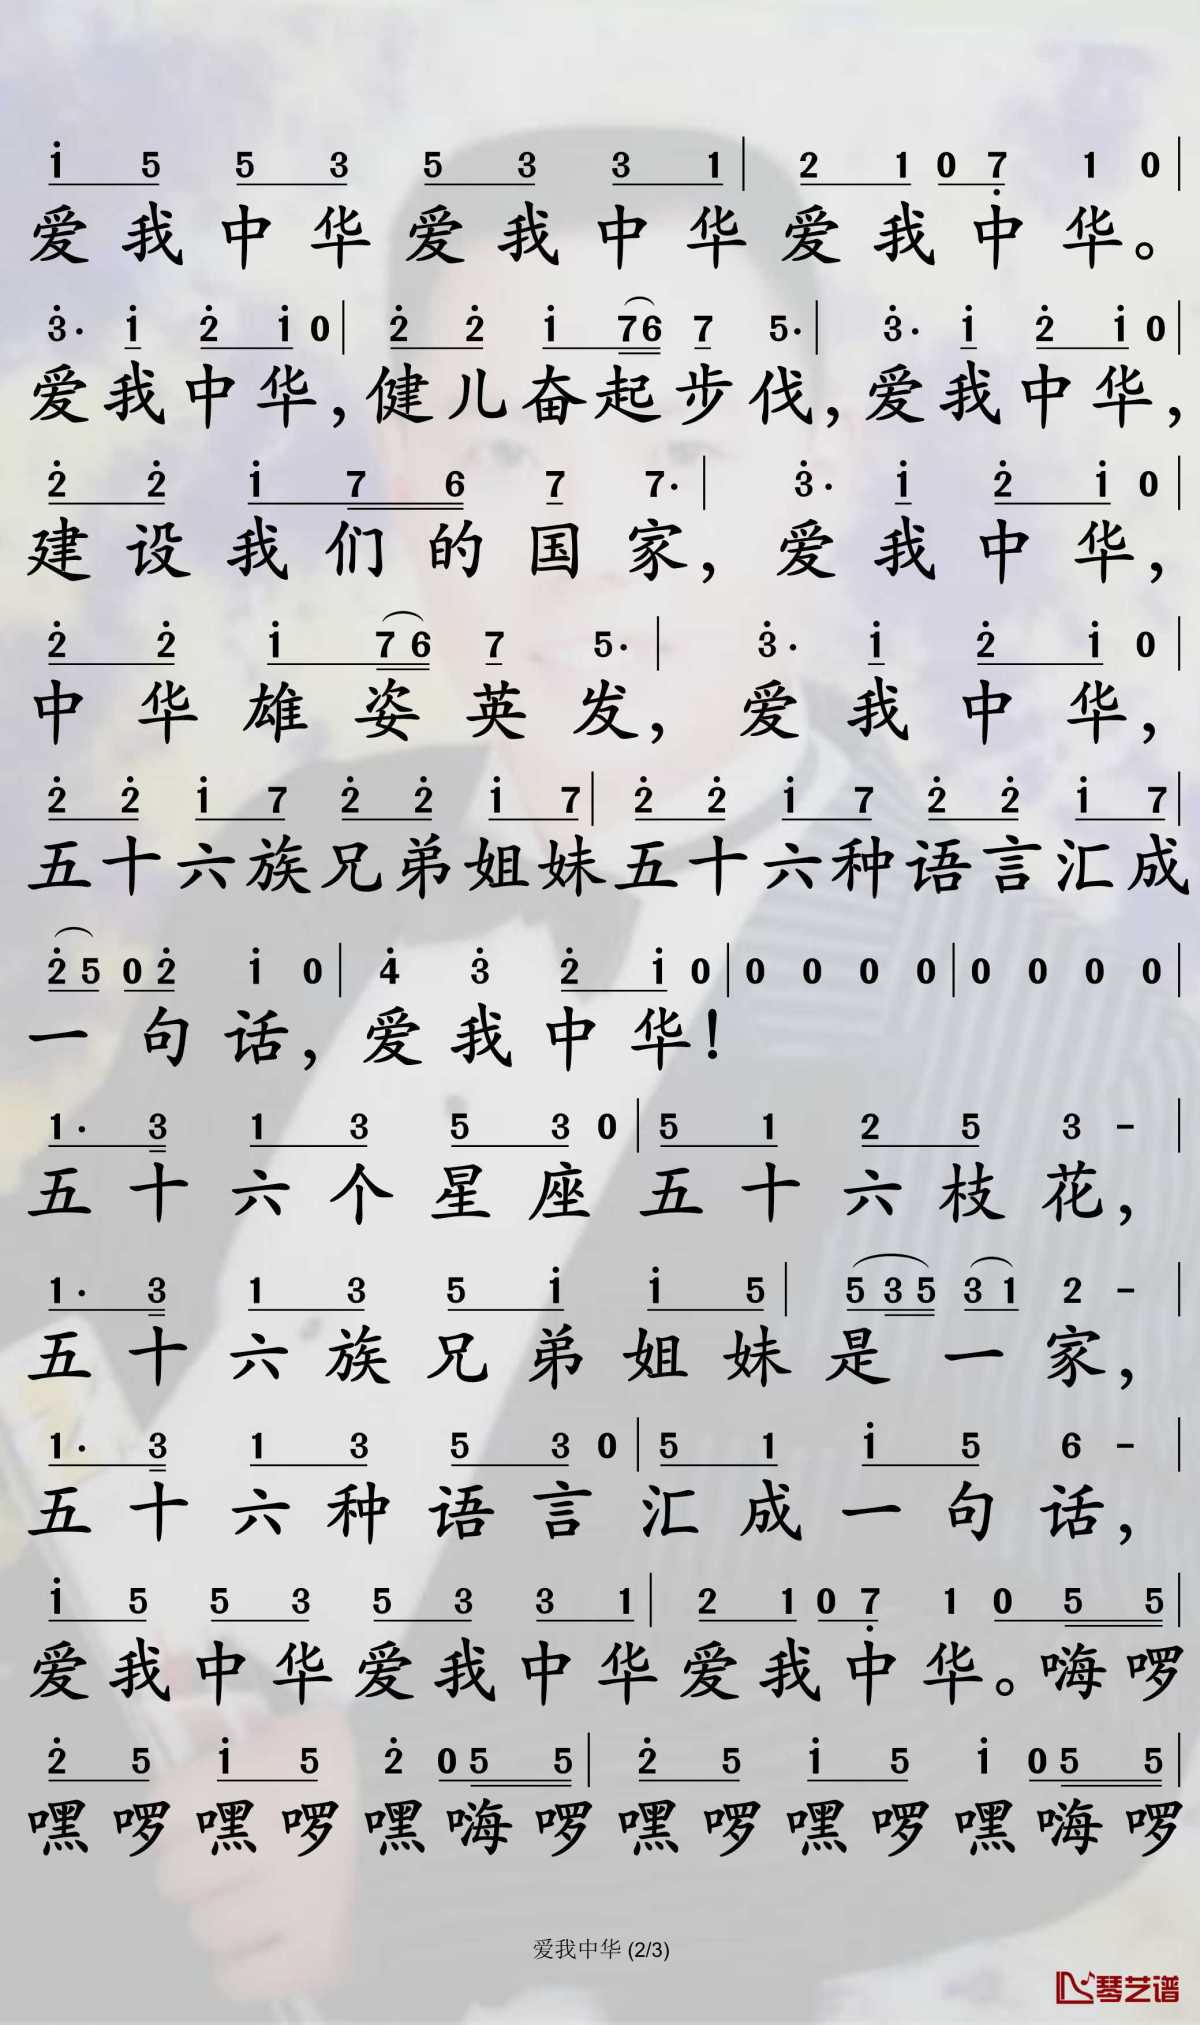 i 5 5 3 5 3 3 1 | 2 1 0 7̣ 1 0 |
爱我中华爱我中华爱我中华。
3̇· i 2̇ i 0 | 2̇ 2̇ i 76 7 5· | 3̇· i 2̇ i 0 |
爱我中华,健儿奋起步伐,爱我中华,
2̇ 2̇ i 7 6 7 7· | 3̇· i 2̇ i 0 |
建设我们的国家,爱我中华,
2̇ 2̇ i 7 6 7 5· | 3̇· i 2̇ i 0 |
中华雄姿英发,爱我中华,
2̇ 2̇ i 7 2̇ 2̇ i 7 | 2̇ 2̇ i 7 2̇ 2̇ i 7 |
五十六族兄弟姐妹五十六种语言汇成
2̇ 5 0 2̇ i 0 | 4̇ 3̇ 2̇ i 0 | 0 0 0 0 | 0 0 0 0 |
一句话,爱我中华!
1· 3 1 3 5 3 0 | 5 1 2 5 3 - |
五十六个星座五十六枝花,
1· 3 1 3 5 i i 5 | 5 3 5 3 1 2 - |
五十六族兄弟姐妹是一家,
1· 3 1 3 5 3 0 | 5 1 i 5 6 - |
五十六种语言汇成一句话,
i 5 5 3 5 3 3 1 | 2 1 0 7̣ 1 0 5 5 |
爱我中华爱我中华爱我中华。嗨啰
2̇ 5 i 5 2̇ 0 5 5 | 2̇ 5 i 5 i 0 5 5 |
嘿啰嘿啰嘿嗨啰嘿啰嘿啰嘿嗨啰
爱我中华 (2/3)
琴艺谱